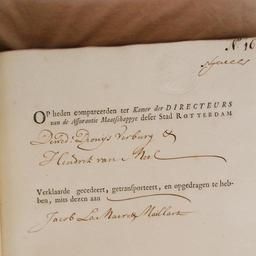 N° 16
OP heden compareerden ter Kamer der DIRECTEURS
van de Assurantie Maatschappye deser Stad ROTTERDAM
Dewed: Dionijs Verburg &
Hendrik van
Verklaarde gecedeert, getransporteert, en opgedragen te heb-
ben, mits dezen aan
Jacob